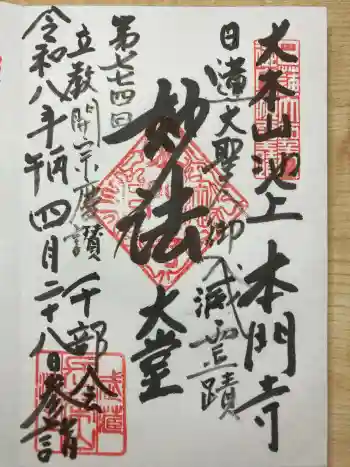 大本山池上本門寺
日蓮大聖人御入滅霊蹟
妙法
大堂
第七七四回
立教開宗慶讃千部会
令和八年丙午四月二十八日参詣